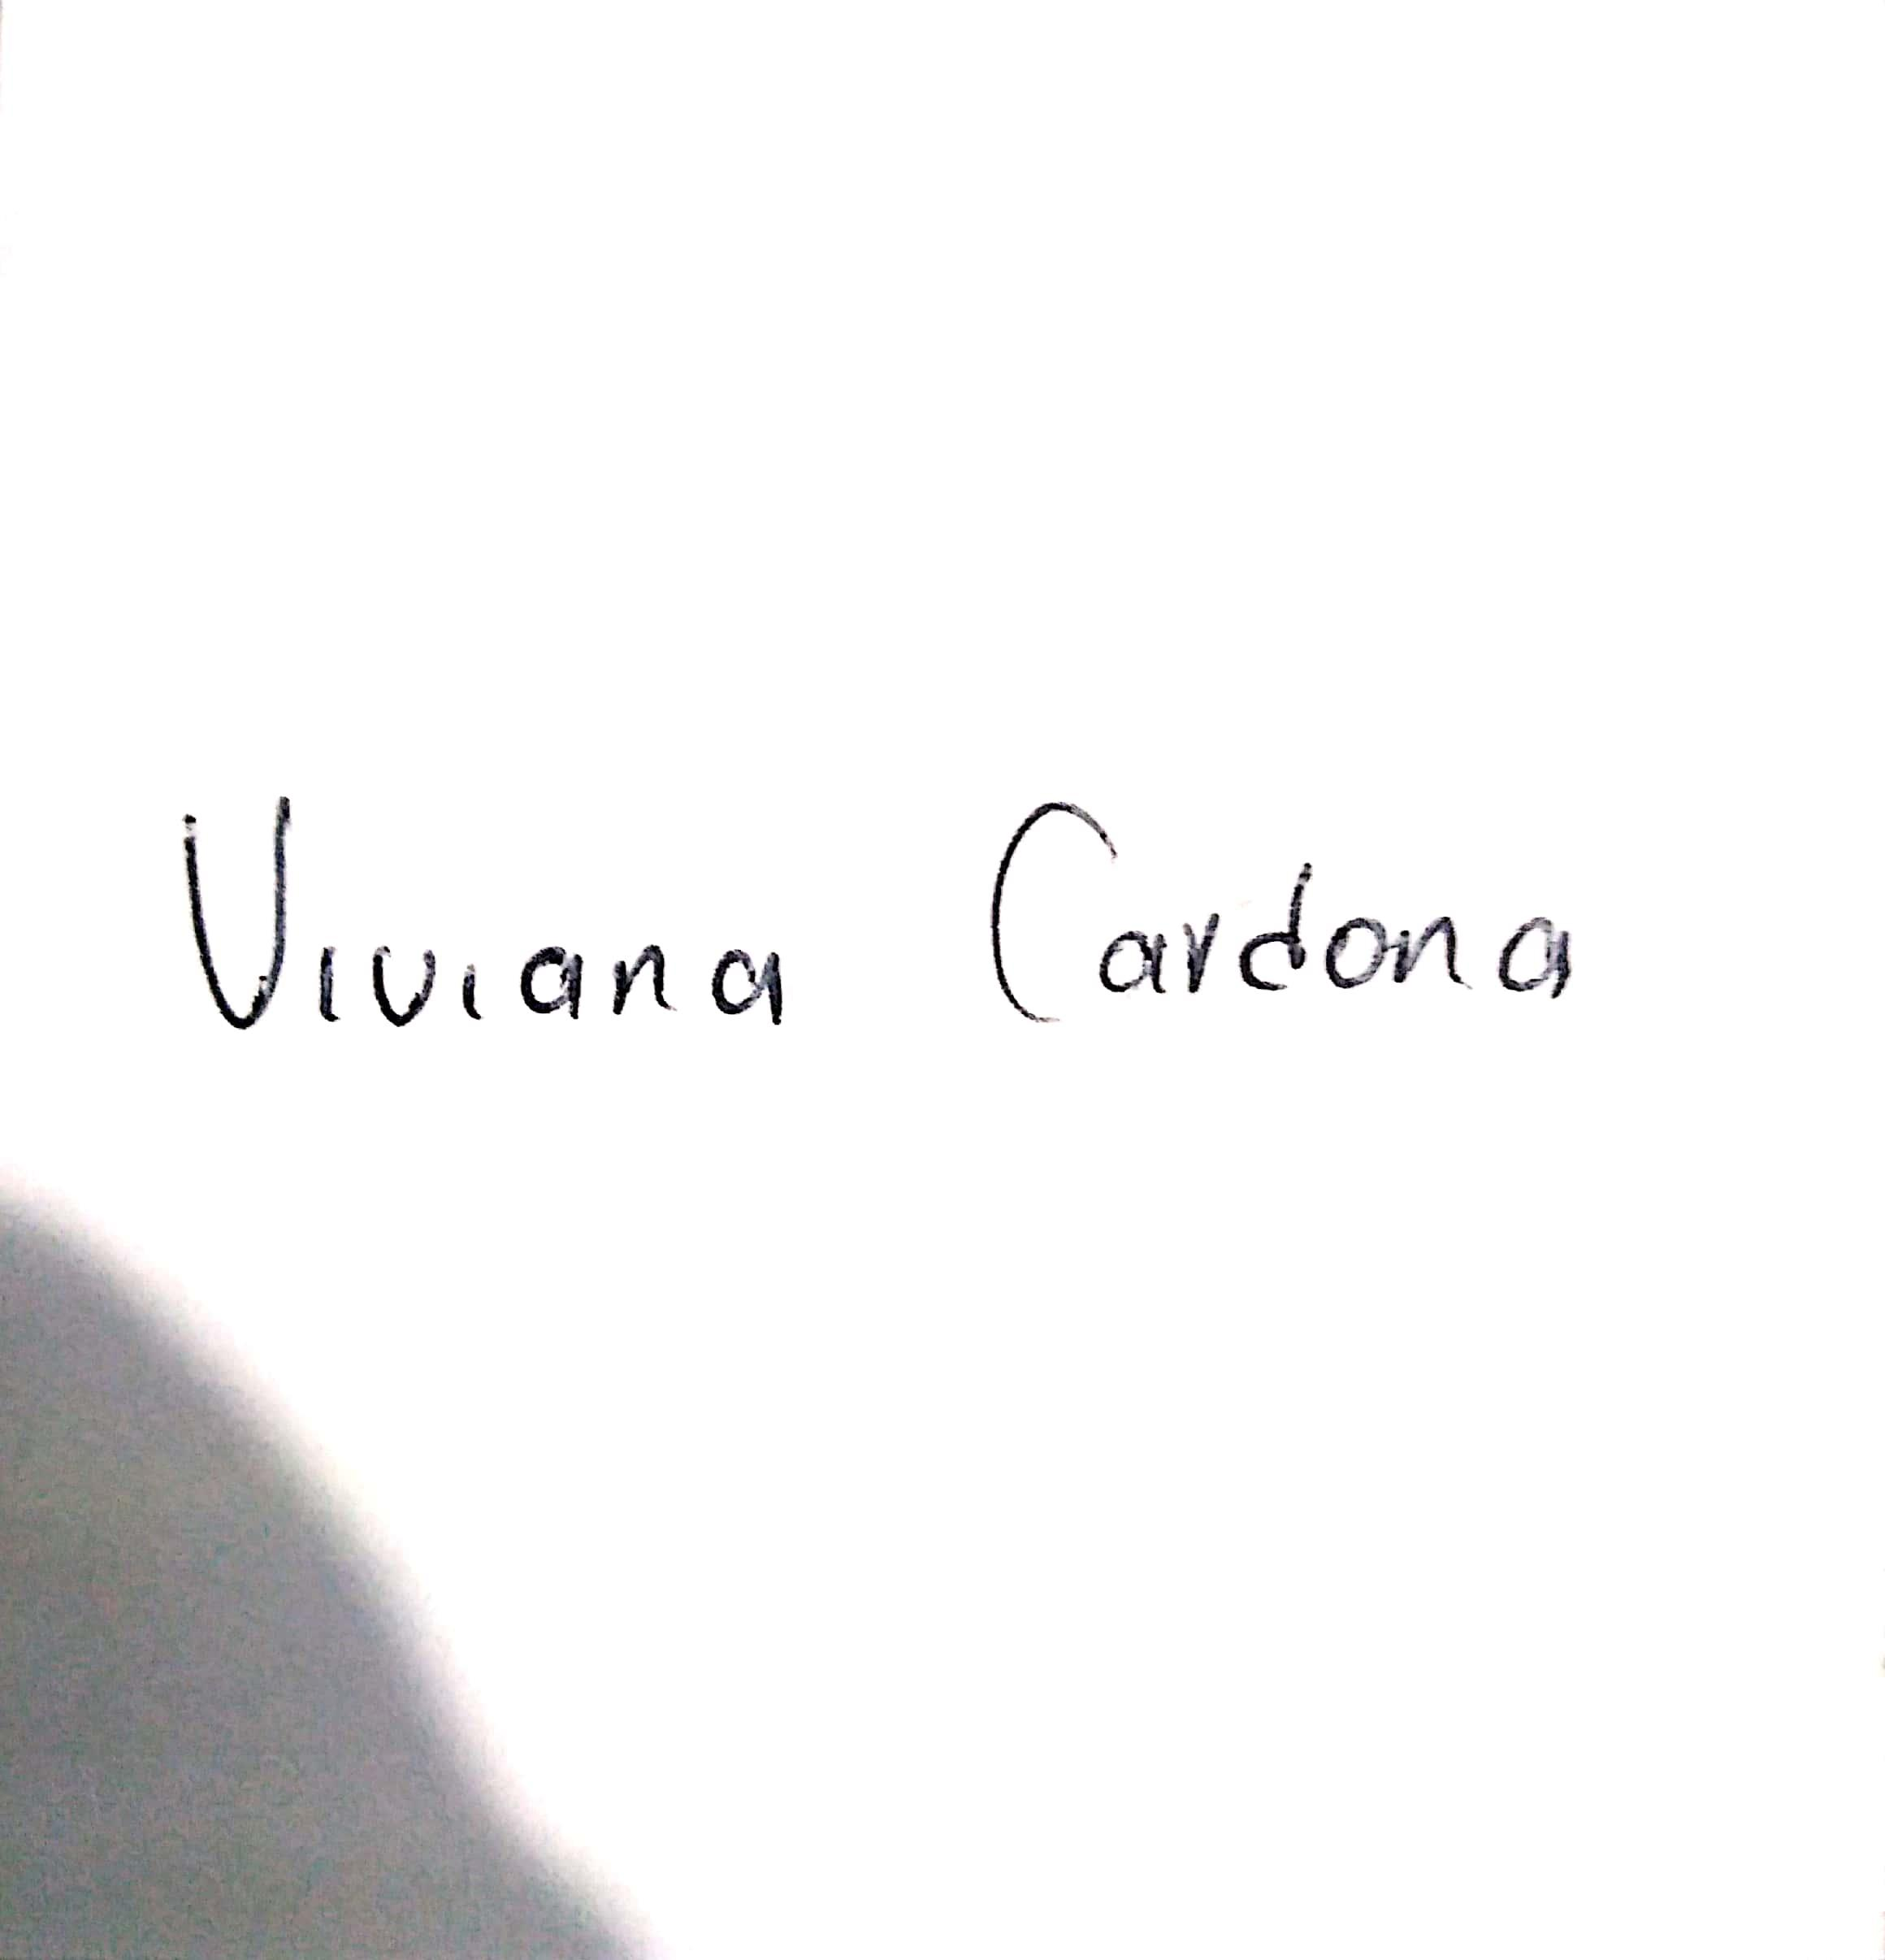 Viviana Cardona